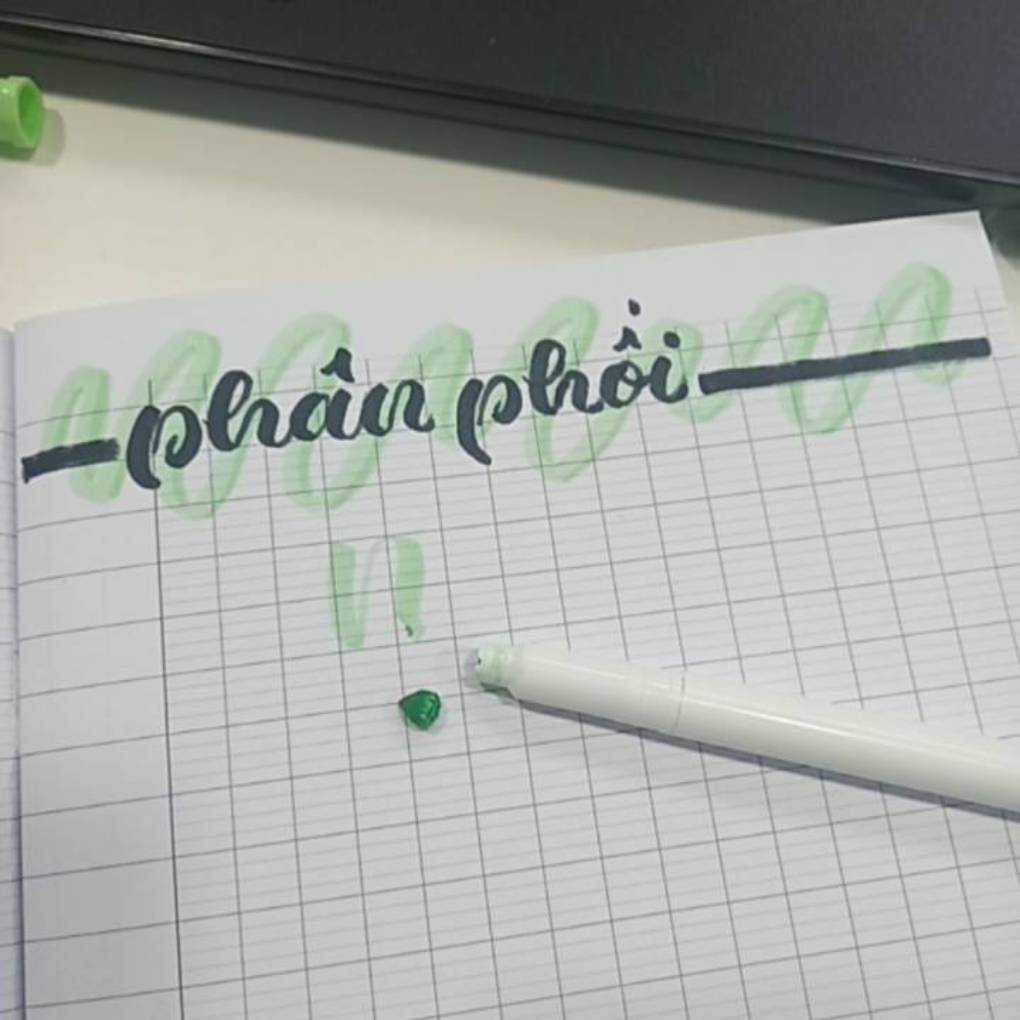 phân phối
n